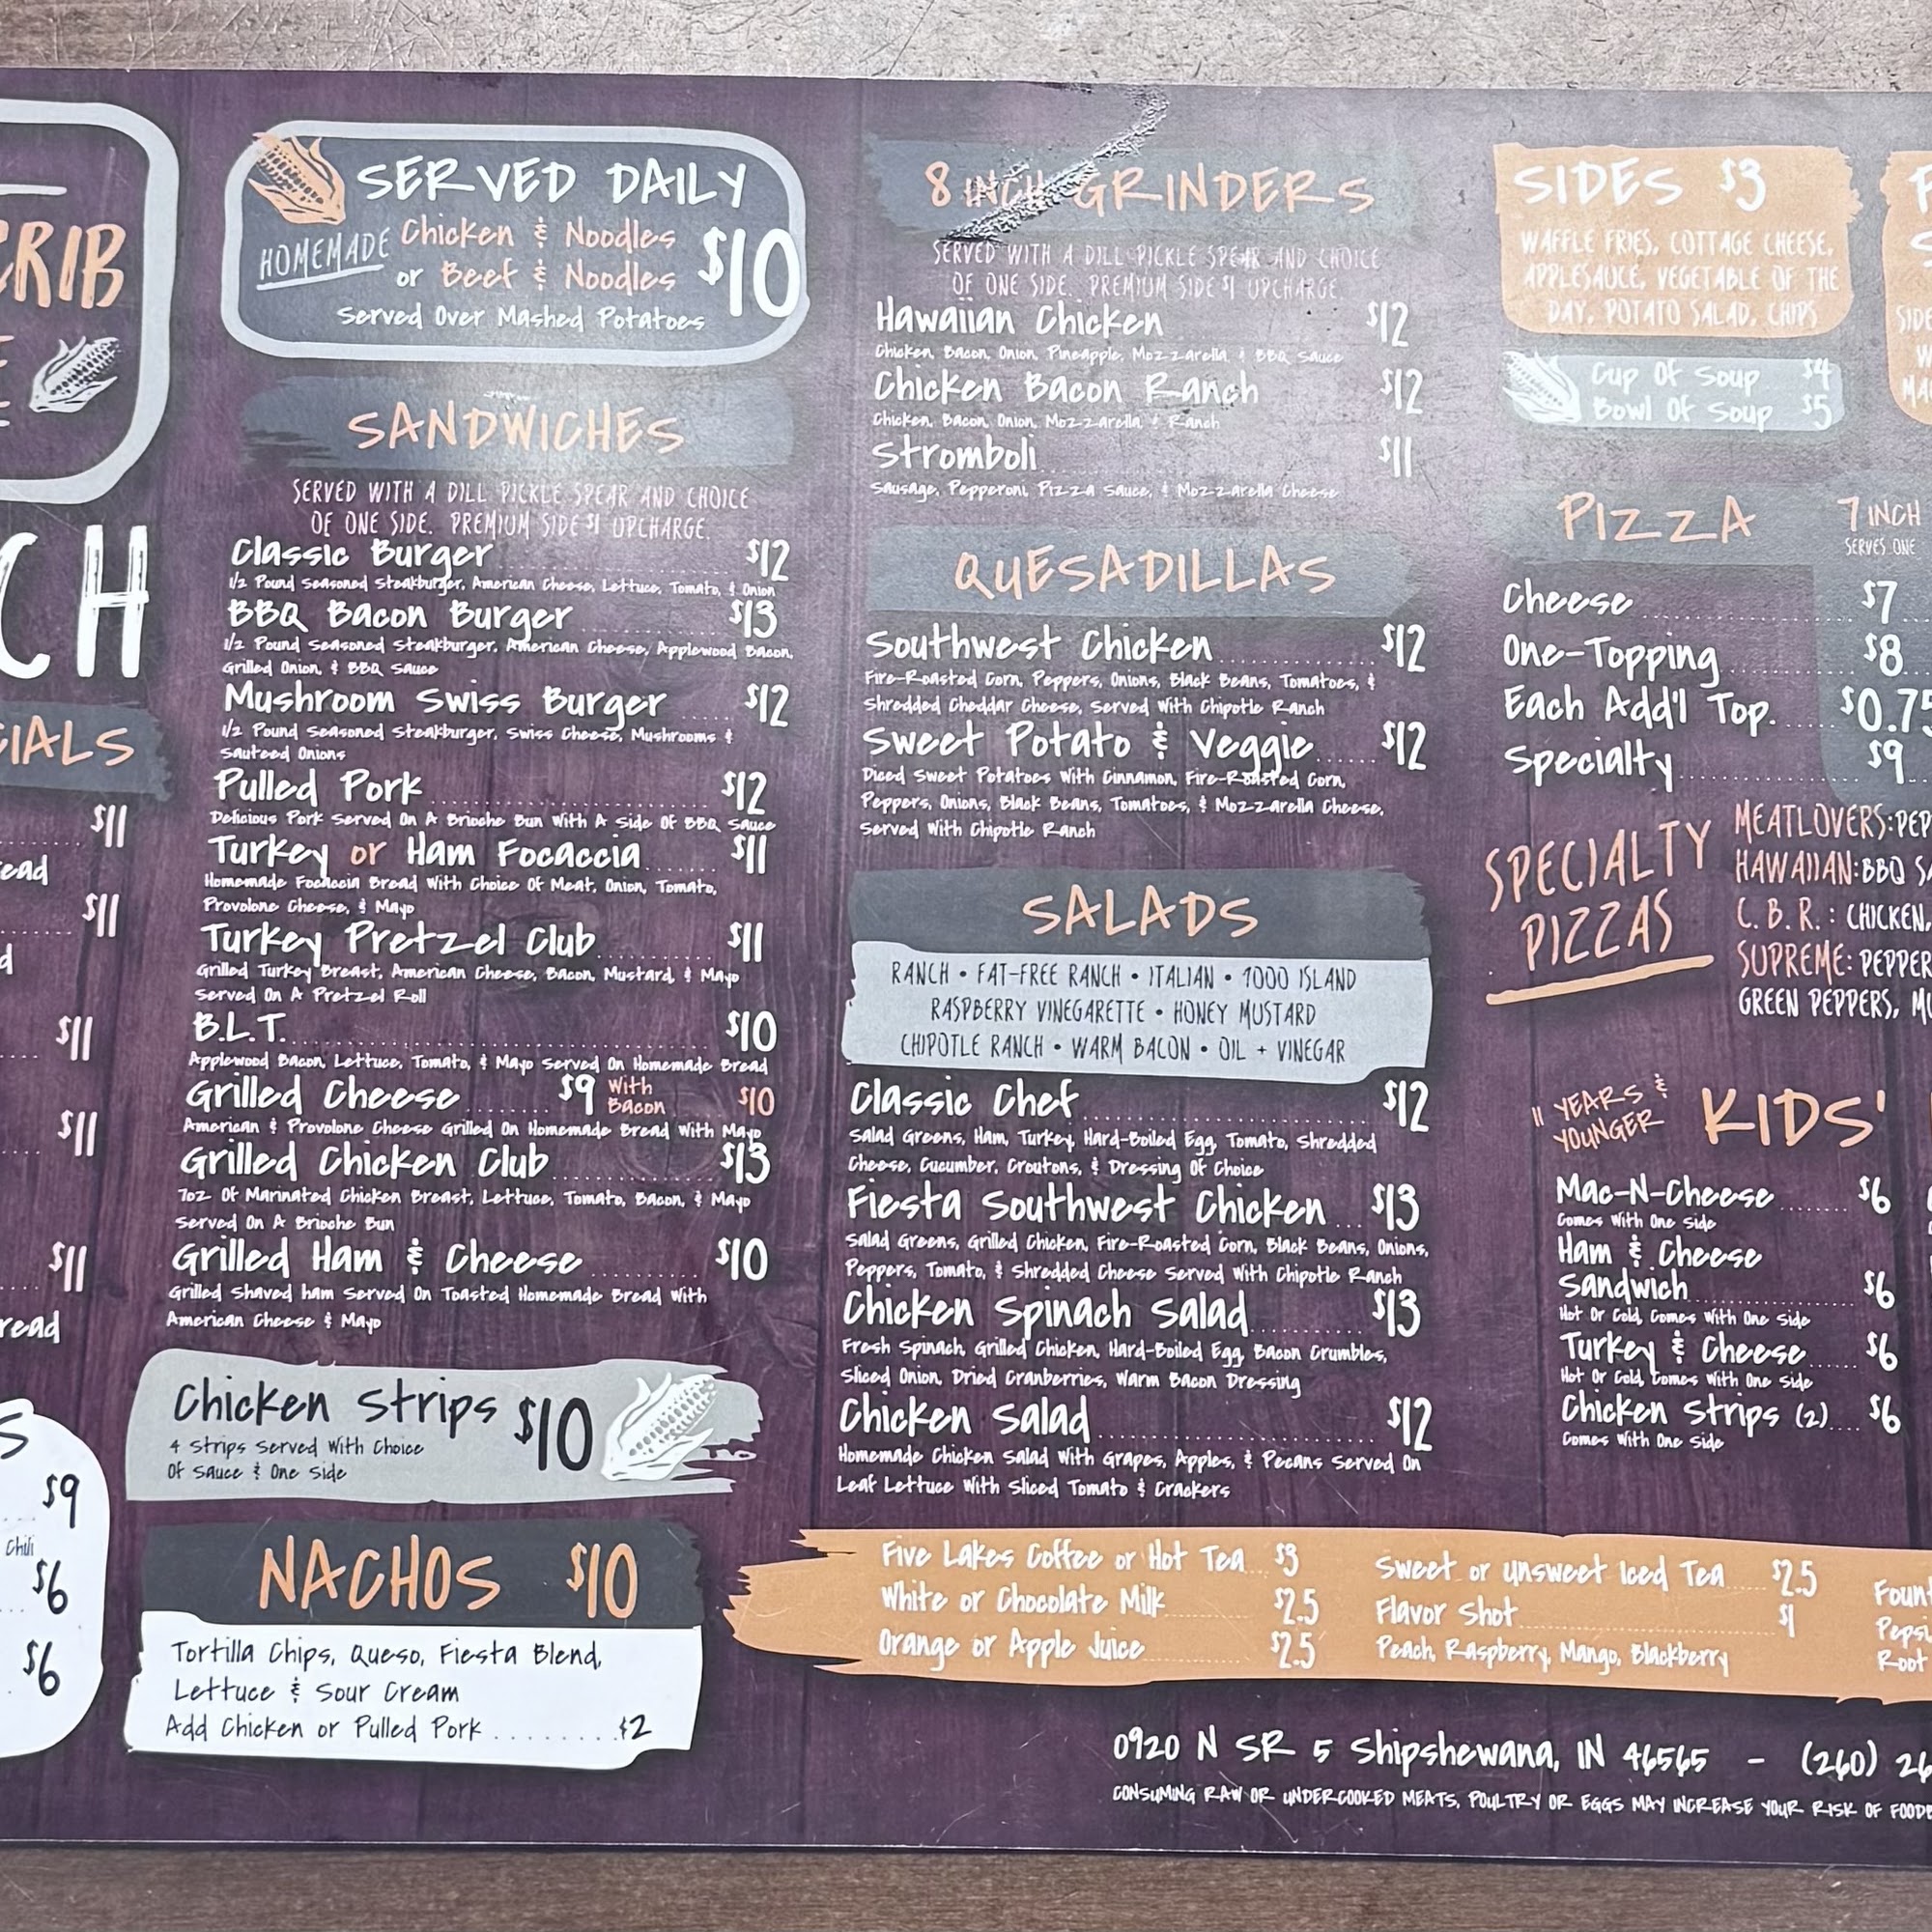 CRIB
CH
CIALS
$11
ead
$11
d
$11
$11
$11
read
S
$9
Chili
$6
$6
SERVED DAILY
HOMEMADE Chicken & Noodles
or Beef & Noodles
$10
Served Over Mashed Potatoes
SANDWICHES
SERVED WITH A DILL PICKLE SPEAR AND CHOICE
OF ONE SIDE. PREMIUM SIDE $1 UPCHARGE.
Classic Burger $12
1/2 Pound Seasoned Steakburger, American Cheese, Lettuce, Tomato, & Onion
BBQ Bacon Burger $13
1/2 Pound Seasoned Steakburger, American Cheese, Applewood Bacon,
Grilled Onion, & BBQ Sauce
Mushroom Swiss Burger $12
1/2 Pound Seasoned Steakburger, Swiss Cheese, Mushrooms &
Sauteed Onions
Pulled Pork $12
Delicious Pork Served On A Brioche Bun With A Side Of BBQ Sauce
Turkey or Ham Focaccia $11
Homemade Focaccia Bread With Choice Of Meat, Onion, Tomato,
Provolone Cheese, & Mayo
Turkey Pretzel Club $11
Grilled Turkey Breast, American Cheese, Bacon, Mustard, & Mayo
Served On A Pretzel Roll
B.L.T. $10
Applewood Bacon, Lettuce, Tomato, & Mayo Served On Homemade Bread
Grilled Cheese $9 With Bacon $10
American & Provolone Cheese Grilled On Homemade Bread With Mayo
Grilled Chicken Club $13
7oz Of Marinated Chicken Breast, Lettuce, Tomato, Bacon, & Mayo
Served On A Brioche Bun
Grilled Ham & Cheese $10
Grilled Shaved ham Served On Toasted Homemade Bread With
American Cheese & Mayo
Chicken Strips $10
4 Strips Served With Choice
Of Sauce & One Side
NACHOS $10
Tortilla Chips, Queso, Fiesta Blend,
Lettuce & Sour Cream
Add Chicken or Pulled Pork $2
8 INCH GRINDERS
SERVED WITH A DILL PICKLE SPEAR AND CHOICE
OF ONE SIDE. PREMIUM SIDE $1 UPCHARGE.
Hawaiian Chicken $12
Chicken, Bacon, Onion, Pineapple, Mozzarella, & BBQ Sauce
Chicken Bacon Ranch $12
Chicken, Bacon, Onion, Mozzarella, & Ranch
Stromboli $11
Sausage, Pepperoni, Pizza Sauce, & Mozzarella Cheese
QUESADILLAS
Southwest Chicken $12
Fire-Roasted Corn, Peppers, Onions, Black Beans, Tomatoes, &
Shredded Cheddar Cheese, Served With Chipotle Ranch
Sweet Potato & Veggie $12
Diced Sweet Potatoes With Cinnamon, Fire-Roasted Corn,
Peppers, Onions, Black Beans, Tomatoes, & Mozzarella Cheese,
Served With Chipotle Ranch
SALADS
RANCH • FAT-FREE RANCH • ITALIAN • 1000 ISLAND
RASPBERRY VINEGARETTE • HONEY MUSTARD
CHIPOTLE RANCH • WARM BACON • OIL + VINEGAR
Classic Chef $12
Salad Greens, Ham, Turkey, Hard-Boiled Egg, Tomato, Shredded
Cheese, Cucumber, Croutons, & Dressing Of Choice
Fiesta Southwest Chicken $13
Salad Greens, Grilled Chicken, Fire-Roasted Corn, Black Beans, Onions,
Peppers, Tomato, & Shredded Cheese Served With Chipotle Ranch
Chicken Spinach Salad $13
Fresh Spinach, Grilled Chicken, Hard-Boiled Egg, Bacon Crumbles,
Sliced Onion, Dried Cranberries, Warm Bacon Dressing
Chicken Salad $12
Homemade Chicken Salad With Grapes, Apples, & Pecans Served On
Leaf Lettuce With Sliced Tomato & Crackers
SIDES $3
WAFFLE FRIES, COTTAGE CHEESE,
APPLESAUCE, VEGETABLE OF THE
DAY, POTATO SALAD, CHIPS
Cup Of Soup $4
Bowl Of Soup $5
PIZZA
7 INCH
SERVES ONE
Cheese $7
One-Topping $8
Each Add'l Top. $0.75
Specialty $9
SPECIALTY
PIZZAS
MEATLOVERS: PEP
HAWAIIAN: BBQ SA
C. B. R. : CHICKEN,
SUPREME: PEPPER
GREEN PEPPERS, MU
11 YEARS &
YOUNGER
KIDS'
Mac-N-Cheese $6
Comes With One Side
Ham & Cheese
Sandwich $6
Hot Or Cold, Comes With One Side
Turkey & Cheese $6
Hot Or Cold, Comes With One Side
Chicken Strips (2) $6
Comes With One Side
Five Lakes Coffee or Hot Tea $3
White or Chocolate Milk $2.5
Orange or Apple Juice $2.5
Sweet or Unsweet Iced Tea $2.5
Flavor Shot $1
Peach, Raspberry, Mango, Blackberry
Foun
Pepsi
Root
0920 N SR 5 Shipshewana, IN 46565 - (260) 26
CONSUMING RAW OR UNDERCOOKED MEATS, POULTRY OR EGGS MAY INCREASE YOUR RISK OF FOODB